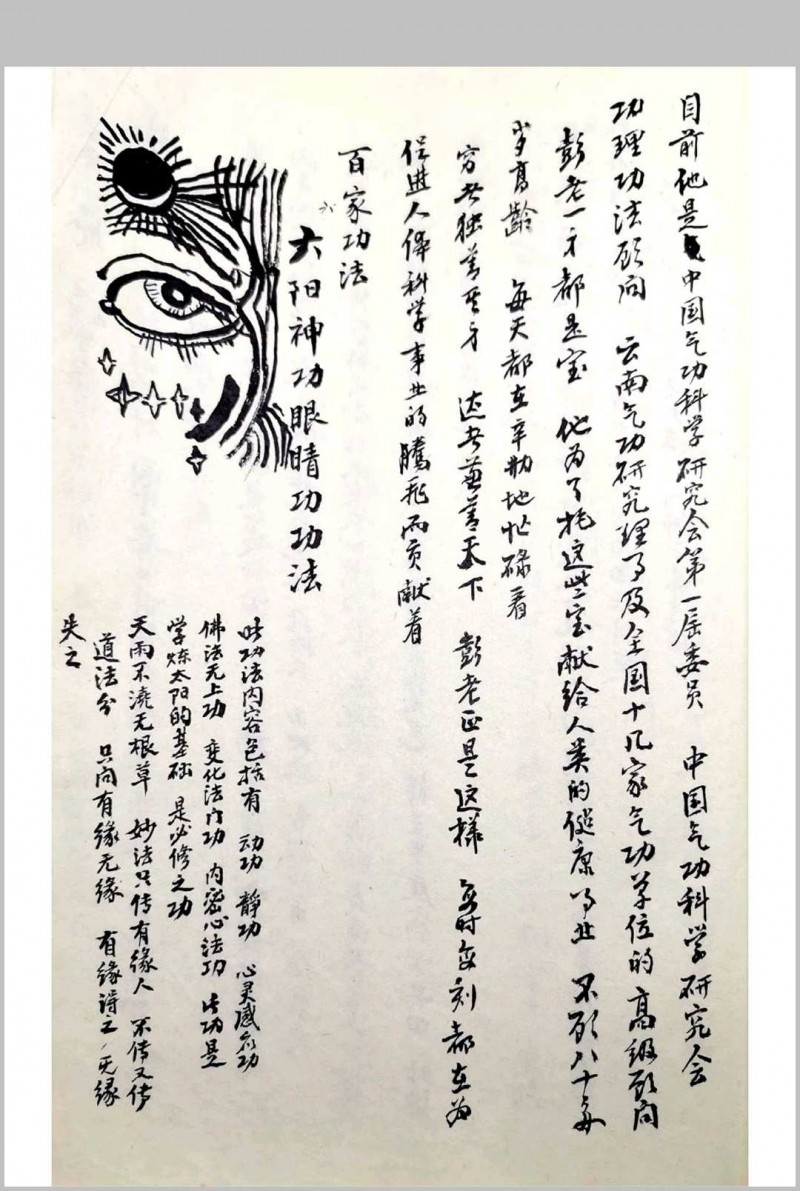 目前他是中国气功科学研究会第一届委员 中国气功科学研究会
功理功法顾问 云南气功研究理事及全国十几家气功单位的高级顾问
彭老一身都是宝 他为了把这些宝献给人类的健康事业 不顾八十多
岁高龄 每天都在辛勤地忙碌着
穷者独善其身 达者兼善天下 彭老正是这样 每时每刻都在为
促进人体科学事业的腾飞而贡献着
百家功法
太阳神功眼睛功功法
此功法内容包括有 动功 静功 心灵感应功
佛法无上功 变化法门功 内密心法功 此功是
学炼太阳的基础 是必修之功
天雨不浇无根草 妙法只传有缘人 不传又传
道法分 只问有缘无缘 有缘得之 无缘
失之